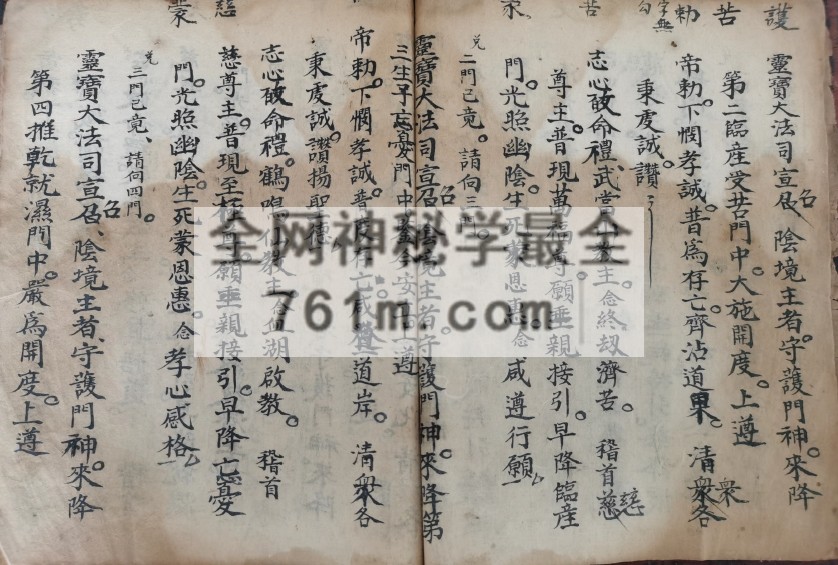 護
苦
勅
字無
苦
靈寶大法司宣召、陰境主者、守護門神。來降
第二臨產受苦門中。大施開度。上遵
帝勅。下憫孝誠。普爲存亡、齊沾道果。清衆各
秉虔誠。讚
志心皈命禮。武當 教主。念終劫濟苦。稽首慈
尊主。普現萬 願垂親接引。早降臨產
門。光照幽陰。生死蒙恩惠。念咸遵行願
二門已竟。請向三門。
靈寶大法司宣召、陰境主者。守護門神。來降第
三生子忘憂門中。 安 上遵
帝勅。下憫孝誠。普度存亡。咸登道岸。清衆各
秉虔誠。讚揚聖德
志心皈命禮。鶴鳴 教主。念血湖啟教。稽首
慈尊主。普現至 願垂親接引。早降忘憂
門。光照幽陰。生死蒙恩惠。念孝心感格
三門已竟、請向四門。
靈寶大法司宣召、陰境主者、守護門神。來降
第四推乾就濕門中。嚴爲開度。上遵
慈
蒙
全网神秘学最全
761m.com